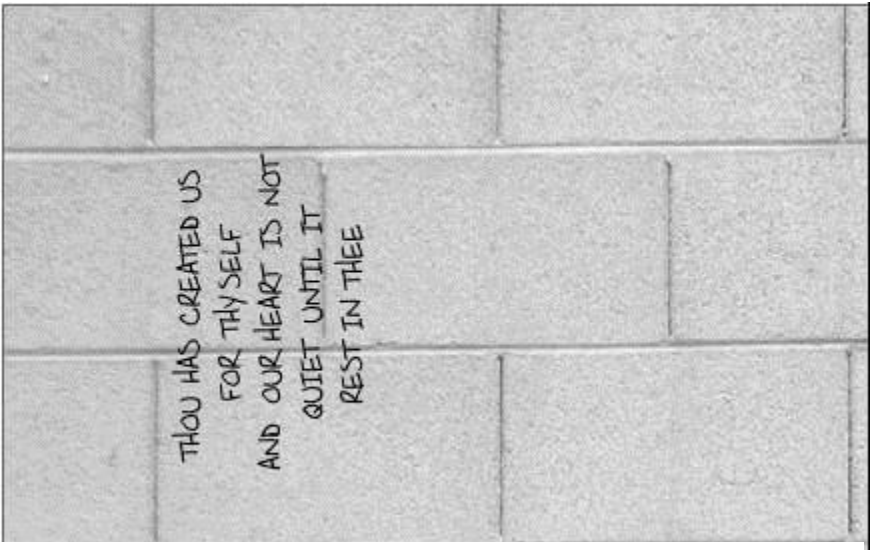 THOU HAS CREATED US
FOR THYSELF
AND OUR HEART IS NOT
QUIET UNTIL IT
REST IN THEE